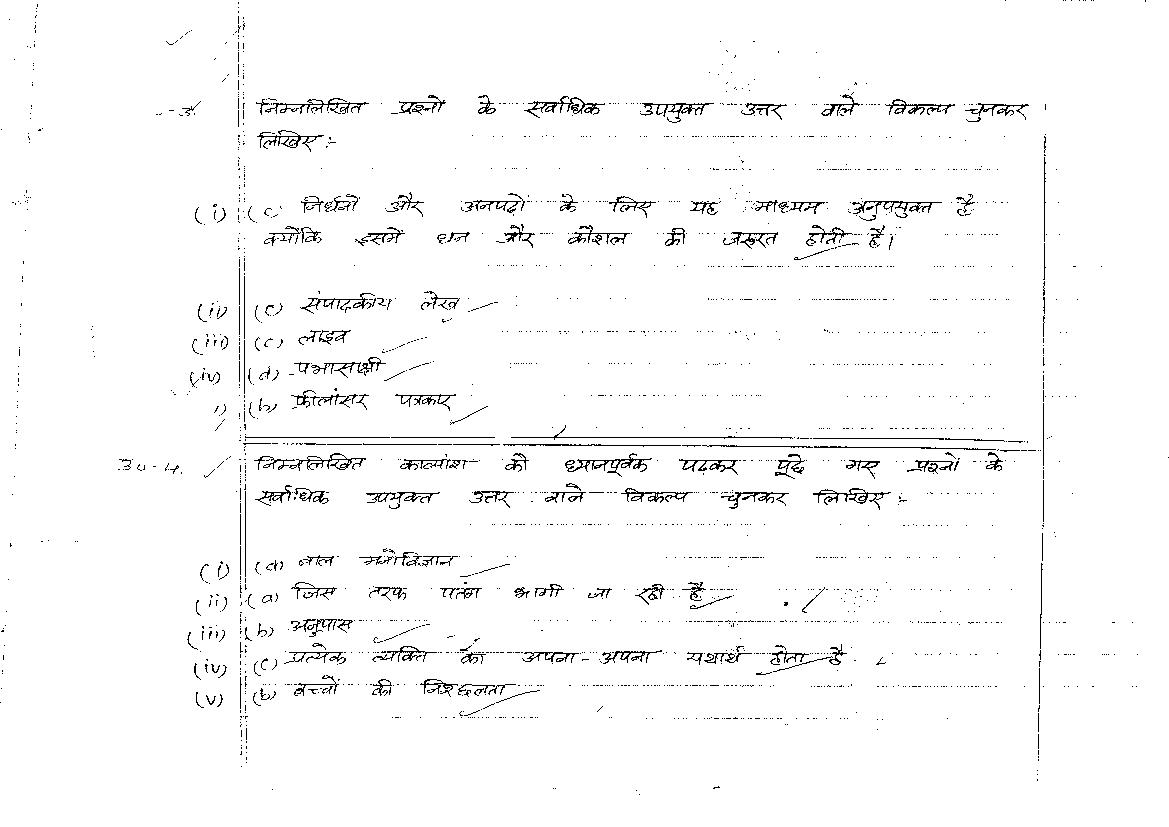 -3. निम्नलिखित प्रश्नों के सर्वाधिक उपयुक्त उत्तर वाले विकल्प चुनकर
लिखिए :-
(i) (c) निर्धनों और अनपढ़ों के लिए यह माध्यम अनुपयुक्त है
क्योंकि इसमें धन और कौशल की जरूरत होती है।
(ii) (c) संपादकीय लेख
(iii) (c) लाइव
(iv) (d) प्रभासाक्षी
(b) फ्रीलांसर पत्रकार
उ०-4. निम्नलिखित काव्यांश को ध्यानपूर्वक पढ़कर पूछे गए प्रश्नों के
सर्वाधिक उपयुक्त उत्तर वाले विकल्प चुनकर लिखिए :-
(i) (d) बाल मनोविज्ञान
(ii) (a) जिस तरफ पतंग भागी जा रही है
(iii) (b) अनुप्रास
(iv) (c) प्रत्येक व्यक्ति का अपना-अपना यथार्थ होता है
(v) (b) बच्चों की निश्छलता